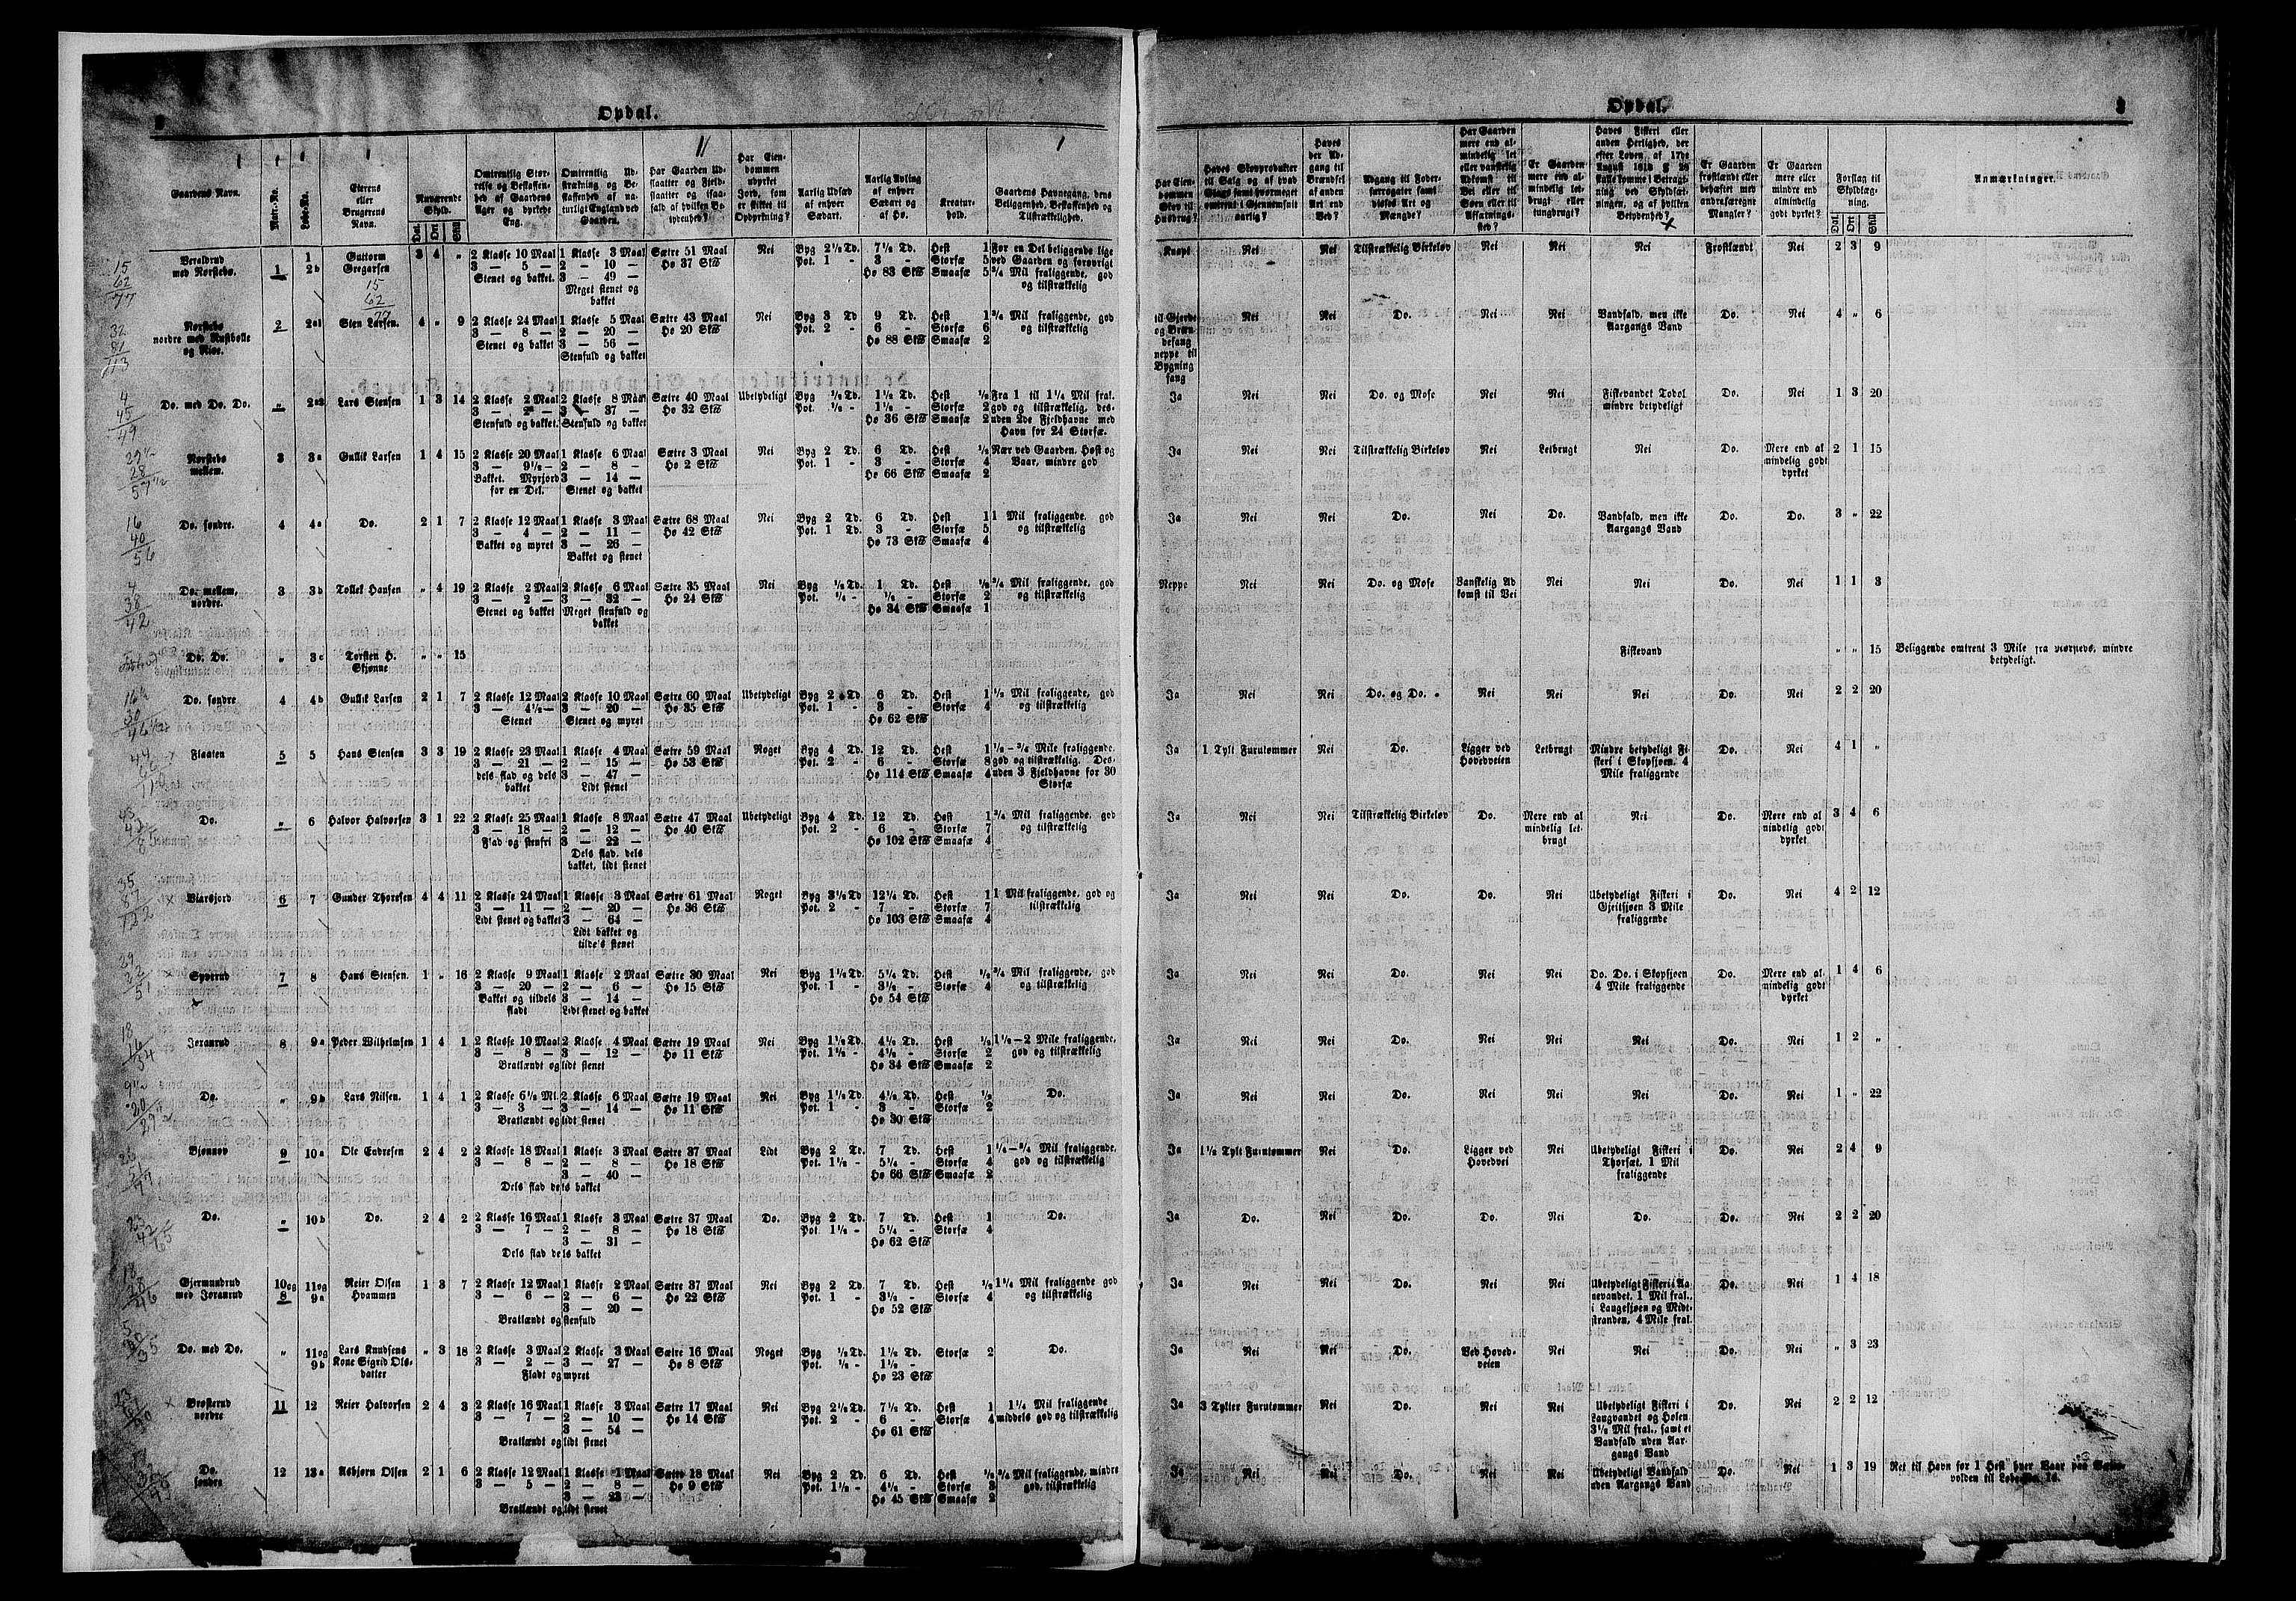 Opdal.
Gaardens Navn.
Matr.-No.
Løbe-No.
Eierens
eller
Brugerens
Navn.
Nuværende
Skyld.
Dal.
Ort
Skill
Omtrentlig Stør-
relse og Bestaffen-
hed af Gaardens
Ager og dyrkede
Eng.
Omtrentlig Ud-
strækning og Be-
skaffenhed af na-
turligt Englænd ved
Gaarden.
Har Gaarden Ud-
slaatter og Fjeld-
slaatter og isaa-
fald af hvilken Be-
tydenhed?
Har Eien-
dommen
udyrket
Jord, som
er skikket til
Opdyrkning?
Aarlig Udsæd
af enhver
Sædart.
Aarlig Avling
af enhver
Sædart og
af Hø.
Kreatur-
hold.
Gaardens Havnegang, dens
Beliggenhed, Beskaffenhed og
Tilstrækkelighed.
Beraldrud
med Norstebø.
1
1
2b
Guttorm
Gregarsen
3 4 „
2 Klasse 10 Maal
3 — 5 —
Stenet og bakket.
1 Klasse 3 Maal
2 — 10 —
3 — 49 —
Meget stenet og
bakket
Sætre 51 Maal
Hø 37 Sk℔
Nei
Byg 2½ Td.
Pot. 1 -
7½ Td.
3 -
Hø 83 Sk℔
Hest 1
Storfæ 5
Smaafæ 5
For en Del beliggende lige
ved Gaarden og forøvrigt
¾ Mil fraliggende, god
og tilstrækkelig
Norstebø
nordre med Rustbølle
og Rise.
2
2a1
Sten Larsen.
4 „ 9
2 Klasse 24 Maal
3 — 8 —
Stenet og bakket
1 Klasse 5 Maal
2 — 20 —
3 — 56 —
Stenfuld og bakket
Sætre 43 Maal
Hø 20 Sk℔
Nei
Byg 3 Td
Pot. 2 -
9 Td.
6 -
Hø 88 Sk℔
Hest 1
Storfæ 6
Smaafæ 2
¾ Mil fraliggende, god
og tilstrækkelig
Do. med Do. Do.
„
2a2
Lars Stensen
1 3 14
2 Klasse 2 Maal
3 — 2 —
Stenfuld og bakket.
2 Klasse 8 Maal
3 — 37 —
Stenfuld og bakket
Sætre 40 Maal
Hø 32 Sk℔
Ubetydeligt
Byg ½ Td.
Pot. ½ -
1½ Td.
1½ -
Hø 36 Sk℔
Hest ½
Storfæ 2
Smaafæ 2
Fra 1 til 1¼ Mil fral.
god og tilstrækkelig, des-
uden 2de Fjeldhavne med
Havn for 24 Storfæ.
Norstebø
mellem.
3
3a
Gullik Larsen
1 4 15
2 Klasse 20 Maal
3 — 9½ —
Bakket. Myrjord
for en Del.
1 Klasse 6 Maal
2 — 8 —
3 — 14 —
Stenet og bakket
Sætre 3 Maal
Hø 2 Sk℔
Nei
Byg 2 Td.
Pot. 1 -
6 Td.
3 -
Hø 66 Sk℔
Hest ½
Storfæ 4
Smaafæ 2
Nær ved Gaarden. Høst og
Vaar, mindre god
Do. søndre.
4
4a
Do.
2 1 7
2 Klasse 12 Maal
3 — 4 —
Bakket og myret
1 Klasse 3 Maal
2 — 11 —
3 — 26 —
Bakket og stenet
Sætre 68 Maal
Hø 42 Sk℔
Nei
Byg 2 Td.
Pot. 1 Td.
6 Td.
3 -
Hø 73 Sk℔
Hest 1
Storfæ 5
Smaafæ 4
1 Mil fraliggende, god
og tilstrækkelig
Do. mellem,
nordre.
3
3b
Tollek Hansen
„ 4 19
2 Klasse 2 Maal
3 — 2 —
Stenet og bakket
2 Klasse 6 Maal
3 — 32 —
Meget stenfuld og
bakket
Sætre 35 Maal
Hø 24 Sk℔
Nei
Byg ½ Td.
Pot. ¼ -
1 Td.
½ -
Hø 34 Sk℔
Hest ½
Storfæ 2
Smaafæ 1
¾ Mil fraliggende, god
og tilstrækkelig
Do. Do.
„
3c
Torsten H.
Skjønne
„ „ 15
Do. søndre
4
4b
Gullik Larsen
2 1 7
2 Klasse 12 Maal
3 — 4½ —
Stenet
2 Klasse 10 Maal
3 — 20 —
Stenet og myret
Sætre 60 Maal
Hø 35 Sk℔
Ubetydeligt
Byg 2 Td.
Pot. 1 -
6 Td.
3 -
Hø 62 Sk℔
Hest 1
Storfæ 4
½ Mil fraliggende, god
og tilstrækkelig
Flaaten
5
5
Hans Stensen
3 3 19
2 Klasse 23 Maal
3 — 21 —
dels flad og dels
bakket
1 Klasse 4 Maal
2 — 15 —
3 — 47 —
Lidt stenet
Sætre 59 Maal
Hø 53 Sk℔
Noget
Byg 4 Td.
Pot. 2 -
12 Td.
6 -
Hø 114 Sk℔
Hest 1
Storfæ 8
Smaafæ 4
½–¾ Mile fraliggende,
god og tilstrækkelig. Des-
uden 3 Fjeldhavne for 30
Storfæ
Do.
„
6
Halvor Halvorsen
3 1 22
2 Klasse 25 Maal
3 — 18 —
Flad og stenfri
1 Klasse 8 Maal
2 — 12 —
3 — 22 —
Dels flad, dels
bakket, lidt stenet
Sætre 47 Maal
Hø 40 Sk℔
Ubetydeligt
Byg 4 Td.
Pot. 2 -
12 Td.
6 -
Hø 102 Sk℔
Hest 1
Storfæ 7
Smaafæ 4
¾ Mil fraliggende, god
og tilstrækkelig
Viarsjord
6
7
Gunder Thoresen
4 4 11
2 Klasse 24 Maal
3 — 11 —
Lidt stenet og bakket
1 Klasse 3 Maal
2 — 20 —
3 — 64 —
Lidt bakket og
tildels stenet
Sætre 61 Maal
Hø 36 Sk℔
Noget
Byg 3½ Td.
Pot. 2 -
12¼ Td.
7 -
Hø 103 Sk℔
Hest 1
Storfæ 7
Smaafæ 4
1 Mil fraliggende, god og
tilstrækkelig
Syverud
7
8
Hans Stensen.
1 „ 16
2 Klasse 9 Maal
3 — 20 —
Bakket og tildels
fladt
1 Klasse 2 Maal
2 — 6 —
3 — 14 —
Lidt stenet og bakket
Sætre 30 Maal
Hø 15 Sk℔
Nei
Byg 1½ Td.
Pot. 1 -
5¼ Td.
3½ -
Hø 54 Sk℔
Hest ½
Storfæ 4
¾ Mil fraliggende, god
og tilstrækkelig
Joranrud
8
9a
Peder Wilhelmsen
1 4 1
2 Klasse 10 Maal
3 — 8 —
2 Klasse 4 Maal
3 — 12 —
Bratlændt og lidt stenet
Sætre 19 Maal
Hø 11 Sk℔
Nei
Byg 1½ Td.
Pot. 1½ -
4½ Td.
4½ -
Hø 34 Sk℔
Hest ½
Storfæ 2
Smaafæ 2
1½–2 Mile fraliggende,
god og tilstrækkelig
Do.
„
9b
Lars Nilsen.
1 4 1
2 Klasse 6½ Ml.
3 — 3 —
2 Klasse 6 Maal
3 — 14 —
Bratlændt og lidt stenet
Sætre 19 Maal
Hø 11 Sk℔
Nei
Byg 1½ Td.
Pot. 1 -
4½ Td.
3 -
Hø 30 Sk℔
Hest ½
Storfæ 2
Do.
Bjønnøy
9
10a
Ole Endresen
2 4 2
2 Klasse 18 Maal
3 — 8 —
1 Klasse 3 Maal
2 — 8 —
3 — 40 —
Dels flad dels bakket
Sætre 37 Maal
Hø 18 Sk℔
Lidt
Byg 2 Td.
Pot. 1½ -
7 Td.
5¼ -
Hø 66 Sk℔
Hest 1
Storfæ 4
Smaafæ 2
¼–¾ Mil fraliggende,
god og tilstrækkelig
Do.
„
10b
Do.
2 4 2
2 Klasse 16 Maal
3 — 7 —
1 Klasse 3 Maal
2 — 8 —
3 — 31 —
Dels flad dels bakket
Sætre 37 Maal
Hø 18 Sk℔
Do.
Byg 2 Td.
Pot. 1½ -
7 Td.
5¼ -
Hø 62 Sk℔
Hest 1
Storfæ 4
Do.
Gjermundrud
med Joranrud
10 og
8
11 og
9a
Reier Olsen
Hvammen
1 3 7
2 Klasse 12 Maal
3 — 6 —
1 Klasse 2 Maal
2 — 6 —
3 — 20 —
Bratlændt og stenfuld
Sætre 37 Maal
Hø 22 Sk℔
Nei
Byg 2 Td.
Pot. 1 -
7 Td.
3½ -
Hø 52 Sk℔
Hest ½
Storfæ 4
1¼ Mil fraliggende god
og tilstrækkelig
Do. med Do.
„
11 og
9b
Lars Knudsens
Kone Sigrid Ols-
datter
„ 3 18
2 Klasse 3 Maal
3 — 2 —
2 Klasse 3 Maal
3 — 27 —
Fladt og myret
Sætre 16 Maal
Hø 8 Sk℔
Noget
Byg ½ Td.
Pot. ½ -
1½ Td.
1½ -
Hø 23 Sk℔
Storfæ 2
Do.
Brøsterud
nordre
11
12
Reier Halvorsen
2 4 3
2 Klasse 16 Maal
3 — 7 —
1 Klasse 3 Maal
2 — 10 —
3 — 54 —
Bratlændt og lidt stenet
Sætre 17 Maal
Hø 14 Sk℔
Nei
Byg 2½ Td.
Pot. 2 -
7½ Td.
6 -
Hø 61 Sk℔
Hest 1
Storfæ 4
1¼ Mil fraliggende
middels god og tilstrækkelig
Do.
søndre
12
13a
Asbjørn Olsen
2 1 6
2 Klasse 12 Maal
3 — 5 —
1 Klasse 1 Maal
2 — 8 —
3 — 23 —
Bratlændt og lidt stenet
Sætre 18 Maal
Hø 9 Sk℔
Nei
Byg 2 Td.
Pot. 1½ -
6 Td.
4½ -
Hø 45 Sk℔
Hest ½
Storfæ 3
Smaafæ 2
¾ Mil fraliggende, mindre
god, tilstrækkelig
Opdal.
3
Har Eien-
dommen
Skov til
Husbrug?
Haves Skovprodukter
til Salg og af hvad
Slags samt hvormeget
omtrent i Gjennemsnit
aarlig?
Haves
der Ad-
gang til
Brændsel
af anden
Art end
Ved?
Adgang til Foder-
surrogater samt
disses Art og
Mængde?
Har Gaarden
mere end al-
mindelig let
eller vanskelig
Adkomst til
Vei eller til
Søen eller til
Afsætnings-
sted?
Er Gaarden
mere end al-
mindelig let-
brugt eller
tungbrugt?
Haves Fiskeri eller
anden Herlighed, der
efter Loven af 17de
August 1818 § 28
kan komme i Betragt-
ning ved Skyldsæt-
ningen, og af hvilken
Betydenhed?
Er Gaarden
frostlændt eller
behæftet med
andre særegne
Mangler?
Er Gaarden
mere eller
mindre end
almindelig
godt dyrket?
Forslag til
Skyldlæg-
ning.
Dal.
Ort
Skill
Anmærkninger.
Knapt
Nei
Nei
Tilstrækkelig Birkeløv
Nei
Nei
Nei
Frostlændt
Nei
2 3 9
til Gjerde
og Bræn-
defang
neppe til
Bygning
fang
Nei
Nei
Do.
Nei
Nei
Vandfald, men ikke
Aargangs Vand
Do.
Nei
4 „ 6
Ja
Nei
Nei
Do. og Mose
Nei
Nei
Fiskevandet Todøl
mindre betydeligt
Do.
Nei
1 3 20
Ja
Nei
Nei
Tilstrækkelig Birkeløv
Nei
Letbrugt
Nei
Do.
Mere end al
mindelig godt
dyrket
2 1 15
Ja
Nei
Nei
Do.
Nei
Do.
Vandfald, men ikke
Aargangs Vand
Do.
Do.
3 „ 22
Neppe
Nei
Nei
Do. og Mose
Vanskelig Ad
komst til Vei
Nei
Nei
Do.
Nei
1 1 3
Fiskevand
„ „ 15
Beliggende omtrent 3 Mile fra Norstebø, mindre
betydeligt.
Ja
Nei
Nei
Do. og Do.
Nei
Nei
Nei
Do.
Nei
2 2 20
Ja
1 Tylt Furutømmer
Nei
Do.
Ligger ved
Hovedveien
Letbrugt
Mindre betydeligt Fi-
skeri i Skopsjøen, 4
Mile fraliggende
Do.
Nei
4 1 „
Ja
Nei
Nei
Tilstrækkelig Birkeløv
Do.
Mere end al
mindelig let-
brugt
Nei
Do.
Mere end al
mindelig godt
dyrket
3 4 6
Ja
Nei
Nei
Do.
Do.
Nei
Ubetydeligt Fiskeri i
Gjeitsjøen 3 Mile
fraliggende
Do.
Nei
4 2 12
Ja
Nei
Nei
Do.
Nei
Nei
Do. Do. i Skopsjøen
4 Mile fraliggende
Do.
Mere end al-
mindelig godt
dyrket
1 4 6
Ja
Nei
Nei
Do.
Nei
Nei
Nei
Do.
Nei
1 2 „
Ja
Nei
Nei
Do.
Nei
Nei
Nei
Do.
Nei
1 „ 22
Ja
1½ Tylt Furutømmer
Nei
Do.
Ligger ved
Hovedvei
Nei
Ubetydeligt Fiskeri i
Thorsæt, 1 Mil
fraliggende
Do.
Nei
2 4 9
Ja
Do.
Nei
Do.
Do.
Nei
Do.
Do.
Nei
2 2 20
Ja
Nei
Nei
Do.
Nei
Nei
Ubetydeligt Fiskeri i Aa-
nevandet, 1 Mil fral.,
i Langesjøen og Midt-
stranden, 4 Mile fral.
Do.
Nei
1 4 18
Ja
Nei
Nei
Do.
Ved Hoved-
veien
Nei
Nei
Do.
Nei
„ 3 23
Ja
3 Tylter Furutømmer
Nei
Do.
Nei
Nei
Ubetydeligt Fiskeri i
Langvandet og Holen
3½ Mil fral., samt et
Vandfald uden Aar-
gangs Vand
Do.
Nei
2 2 12
Ja
Nei
Nei
Do.
Nei
Nei
Ubetydeligt Vandfald
uden Aargangs Vand
Do.
Nei
1 3 19
Ret til Havn for 1 Hest hver Vaar paa
volden til Løbe-No.